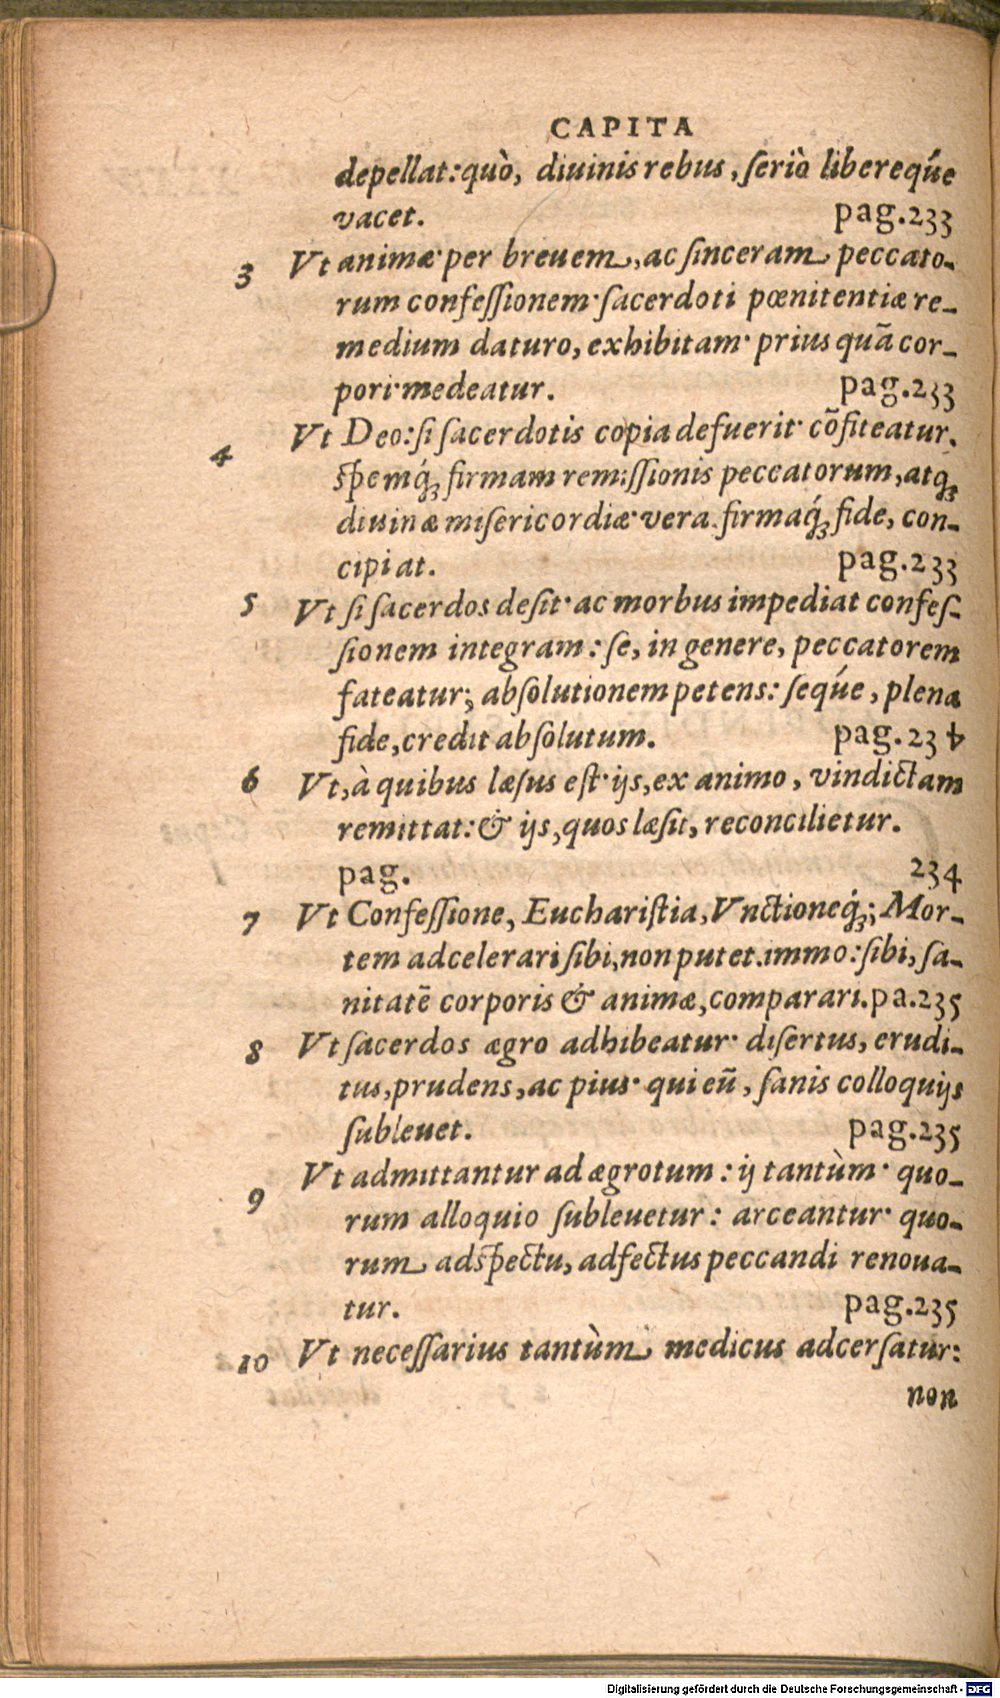 CAPITA
depellat: quò, diuinis rebus, seriò libereque´
vacet. pag.233
3 Vt animæ· per breuem, ac sinceram peccato-
rum confessionem· sacerdoti pœnitentiæ re-
medium daturo, exhibitam· prius quā cor-
pori· medeatur. pag.233
4 Vt Deo: si sacerdotis copia defuerit· cōfiteatur.
spemq́ꝫ firmam remissionis peccatorum, atqꝫ
diuinæ misericordiæ· vera firmaq́ꝫ fide, con-
cipiat. pag.233
5 Vt si sacerdos desit· ac morbus impediat confes-
sionem integram: se, in genere, peccatorem
fateatur; absolutionem petens: sequ´e, plena
fide, credit absolutum. pag.234
6 Vt, à quibus læsus est· ijs, ex animo, vindictam
remittat: & ijs, quos læsit, reconcilietur.
pag. 234
7 Vt Confessione, Eucharistia, Vnctioneq́ꝫ; Mor-
tem adcelerari sibi, non putet. immo: sibi, sa-
nitatē corporis & animæ, comparari. pa.235
8 Vt sacerdos ægro adhibeatur· disertus, erudi-
tus, prudens, ac pius· qui eū, sanis colloquijs
subleuet. pag.235
9 Vt admittantur ad ægrotum: ij tantùm· quo-
rum alloquio subleuetur: arceantur· quo-
rum adspectu, adfectus peccandi renoua-
tur. pag.235
10 Vt necessarius tantùm medicus adcersatur:
non
Digitalisierung gefördert durch die Deutsche Forschungsgemeinschaft - DFG